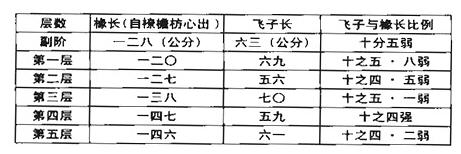 层数 椽长（自橑檐枋心出） 飞子长 飞子与椽长比例
副阶 一二八（公分） 六三（公分） 十分五弱
第一层 一二〇 六九 十之五·八弱
第二层 一二七 五六 十之四·五弱
第三层 一三八 七〇 十之五·一弱
第四层 一四七 五九 十之四强
第五层 一四六 六一 十之四·二弱